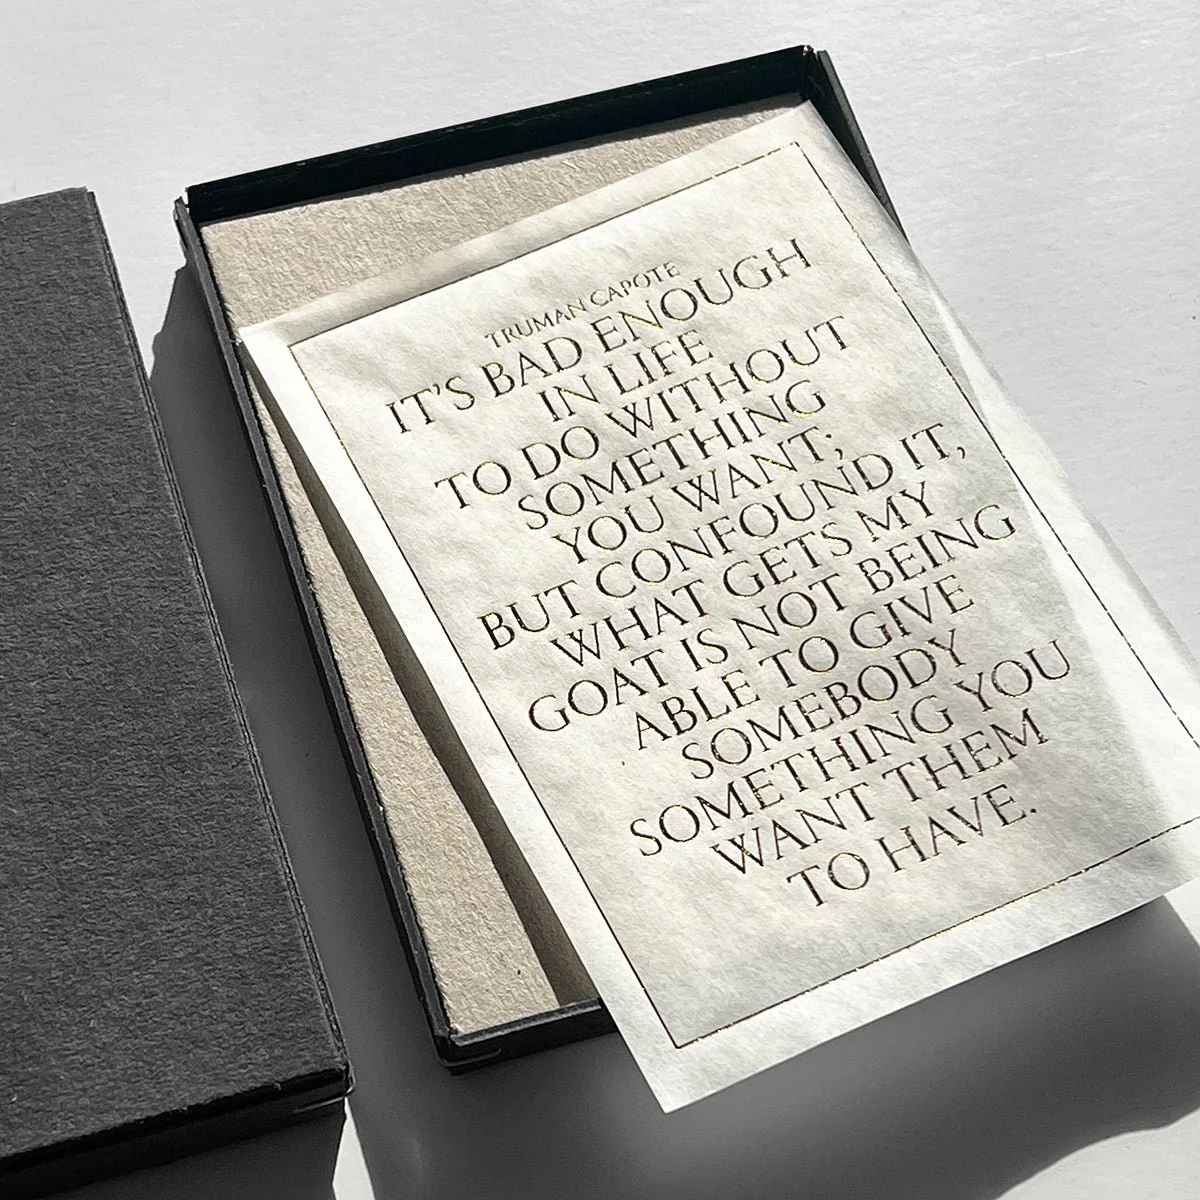 TRUMAN CAPOTE
IT'S BAD ENOUGH
IN LIFE
TO DO WITHOUT
SOMETHING
YOU WANT;
BUT CONFOUND IT,
WHAT GETS MY
GOAT IS NOT BEING
ABLE TO GIVE
SOMEBODY
SOMETHING YOU
WANT THEM
TO HAVE.